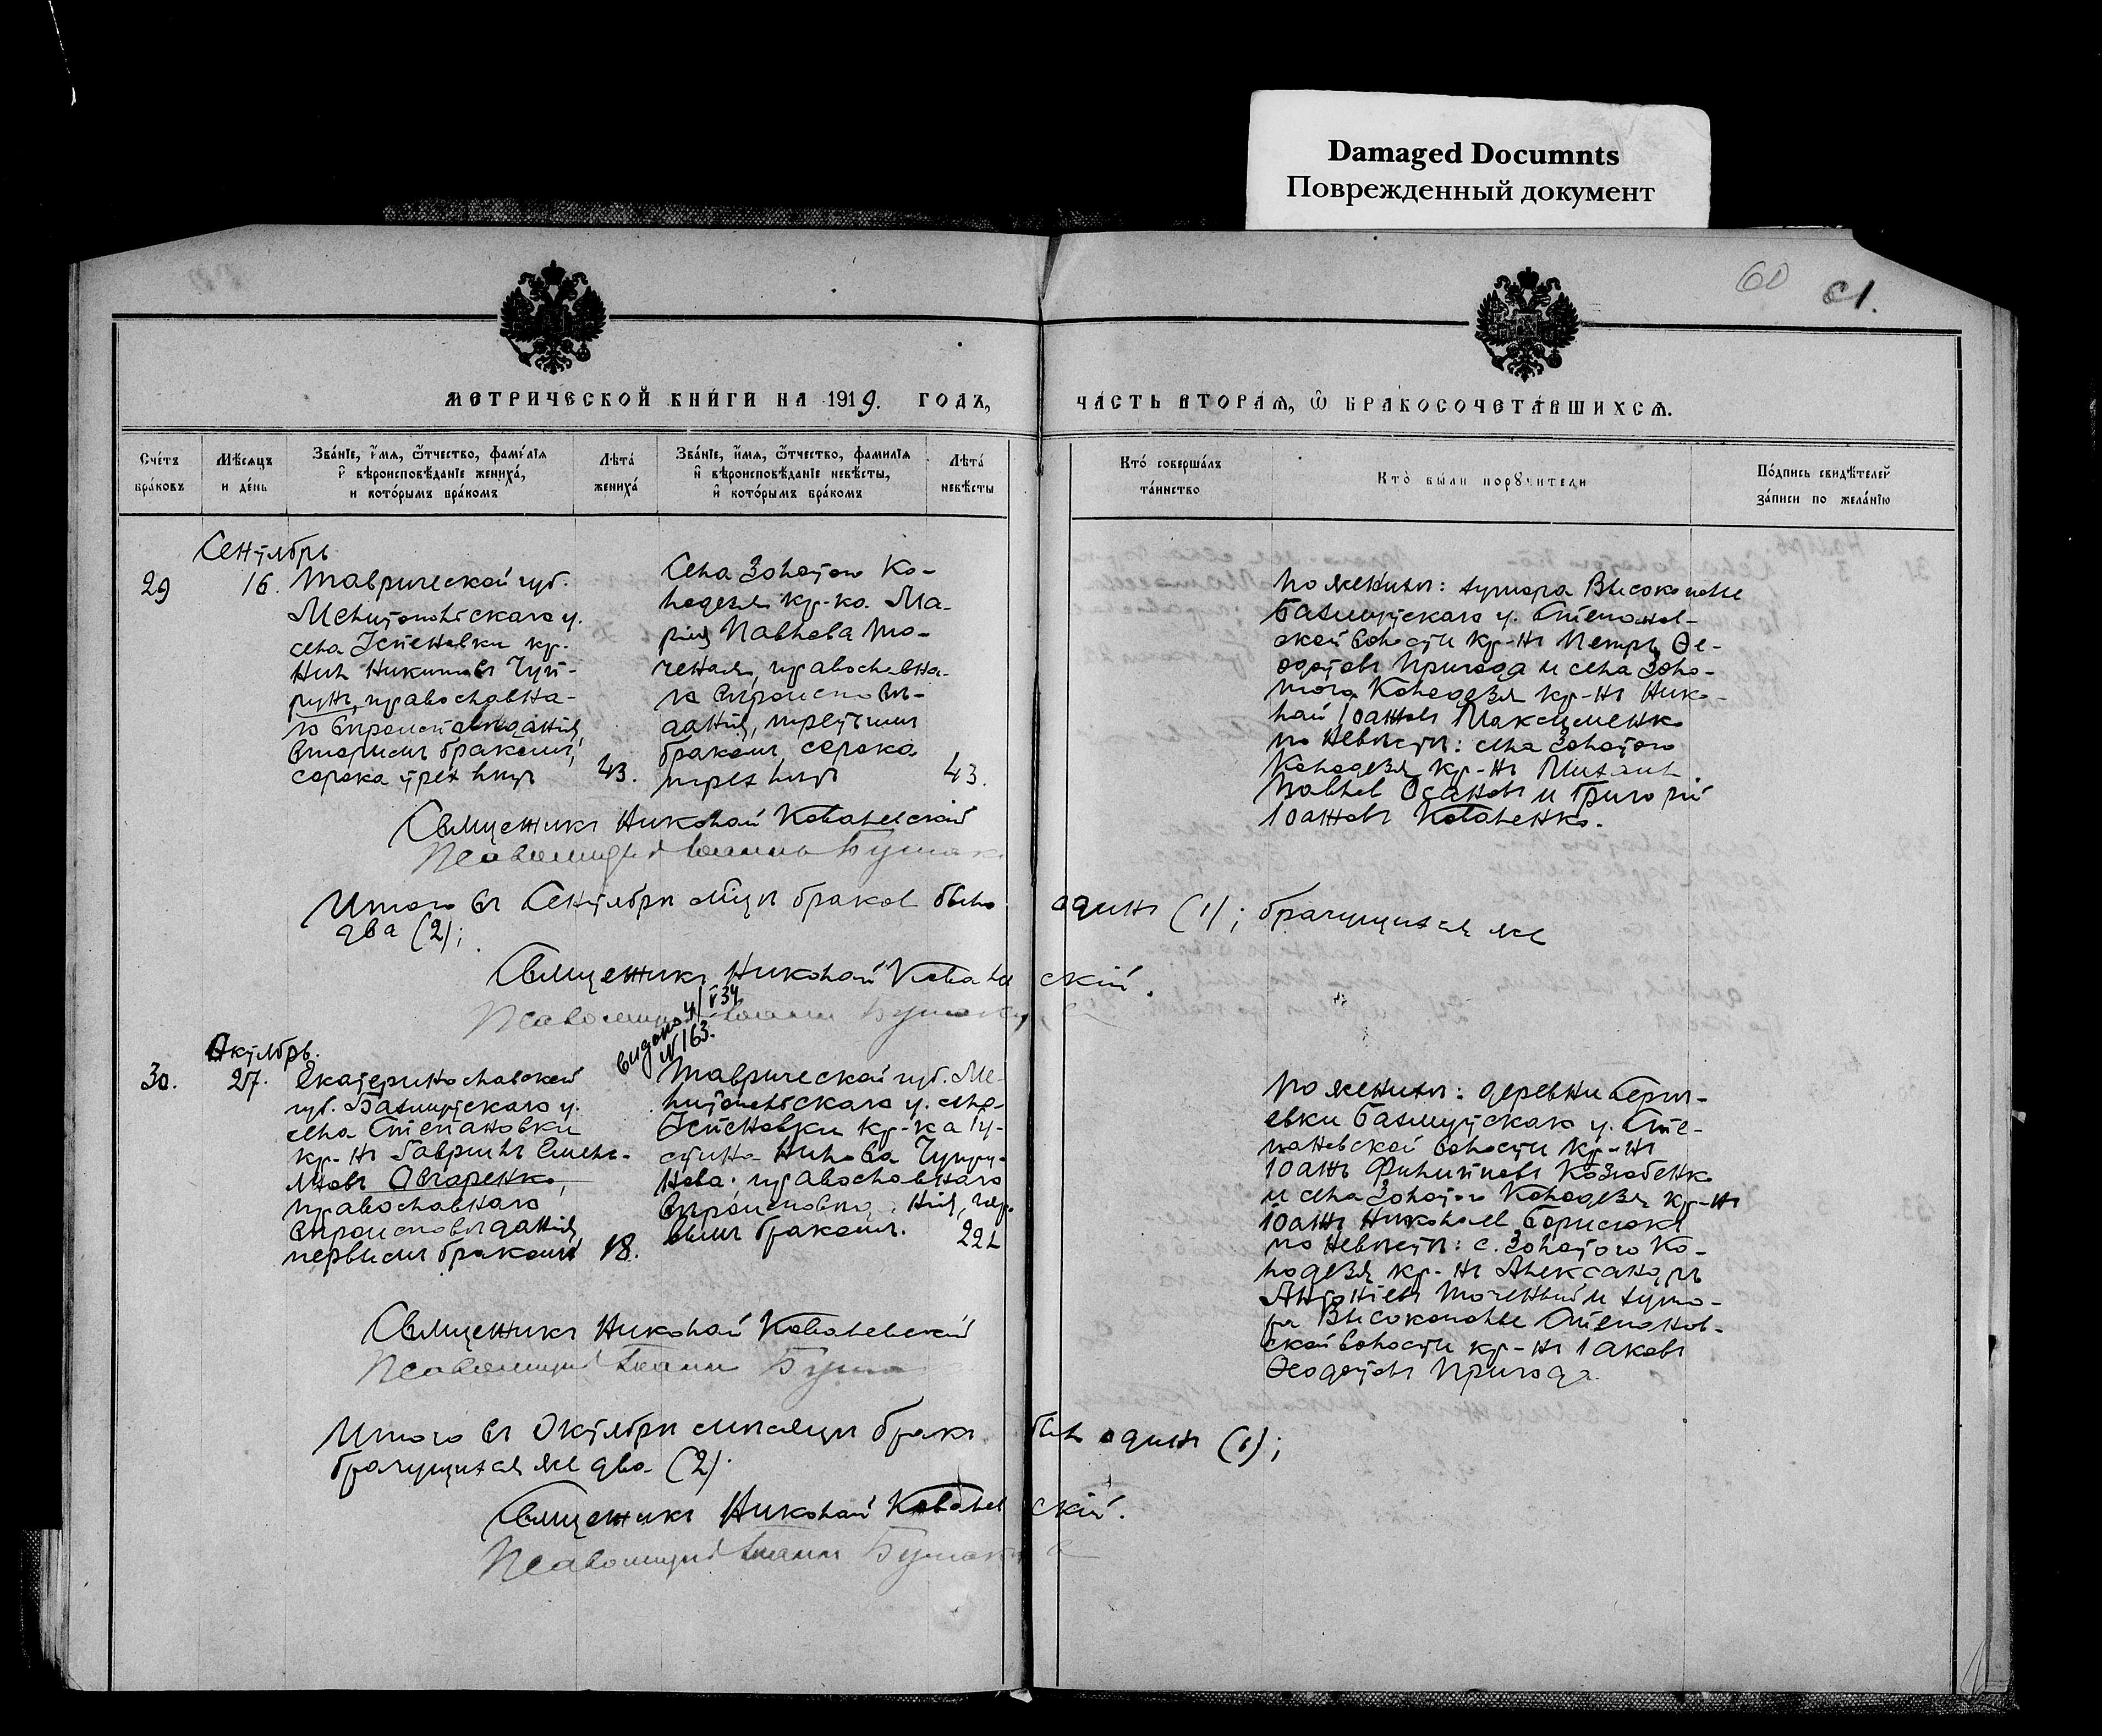 Damaged Documnts
Поврежденный документ
60 61.
МЕТРИЧЕСКОЙ КНИГИ НА 1919. ГОДЪ,
ЧАСТЬ ВТОРАЯ, Ѡ БРАКОСОЧЕТАВШИХСЯ.
Счетъ браковъ
Мѣсяцъ и день
Званіе, имя, ѿчество, фамилія
и вѣроисповѣданіе жениха,
и которымъ бракомъ
Лѣта жениха
Званіе, имя, ѿчество, фамилія
и вѣроисповѣданіе невѣсты,
и которымъ бракомъ
Лѣта невѣсты
Кто совершалъ
таинство
Кто были порꙋчители
Подпись свидѣтелей
записи по желанію
Сентябрь
29
16.
Таврической губ.
Мелитопольскаго у.
села Успеновки кр.
Нилъ Никитовъ Чуп-
рунъ, православна-
го вѣроисповѣданія,
вторымъ бракомъ,
сорока трех лѣтъ
43.
Села Золотого Ко-
лодезя кр-ка Ма-
рия Павлова То-
ченая, православна-
го вѣроисповѣ-
данія, третьимъ
бракомъ, сорока
трех лѣтъ
43.
По женихѣ: хутора Високополье
Бахмутскаго у. Степанов-
ской волости кр-нъ Петръ Ѳе-
одотовъ Пригода и села Золо-
того Колодезя кр-нъ Нико-
лай Іоанновъ Максименко
по невѣстѣ: села Золотого
Колодезя кр-нъ Михаил
Павлов Осанов и Григорій
Іоанновъ Коваленко.
Священникъ Николай Ковалевский
Псаломщикъ Іоаннъ
Итого въ Сентябрѣ м͠цѣ браков было
одинъ (1); брачущихся же
два (2);
Священникъ Николай Ковалевскій.
Псаломщикъ Іоаннъ
видано 4/V 34
N 163.
Октябрь.
30.
27.
Екатеринославской
губ. Бахмутскаго у.
села Степановки
кр-нъ Гавріилъ Емель-
яновъ Овчаренко,
православнаго
вѣроисповѣданія,
первымъ бракомъ
18.
Таврической губ. Ме-
литопольскаго у. села
Успеновки кр-ка Іу-
стина Нилова Чупру-
нова; православнаго
вѣроисповѣд нія, пер-
вымъ бракомъ.
22 л
По женихѣ: деревни Серги-
евки Бахмутскаго у. Сте-
пановской волости кр-нъ
Іоаннъ Филипповъ Козюбенко
и села Золотого Колодезя кр-нъ
Іоаннъ Николаев Борисюкъ
по невѣстѣ: с. Золотого Ко-
лодезя кр-нъ Александръ
Антоніевъ Точенный и хуто-
ра Високополье Степанов-
ской волости кр-нъ Іаковъ
Ѳеодотовъ Пригода.
Священникъ Николай Ковалевский
Псаломщикъ Іоаннъ
Итого въ Октябрѣ мѣсяцѣ бракъ былъ одинъ (1);
брачущихся же два (2).
Священникъ Николай Ковалевскій.
Псаломщикъ Іоаннъ